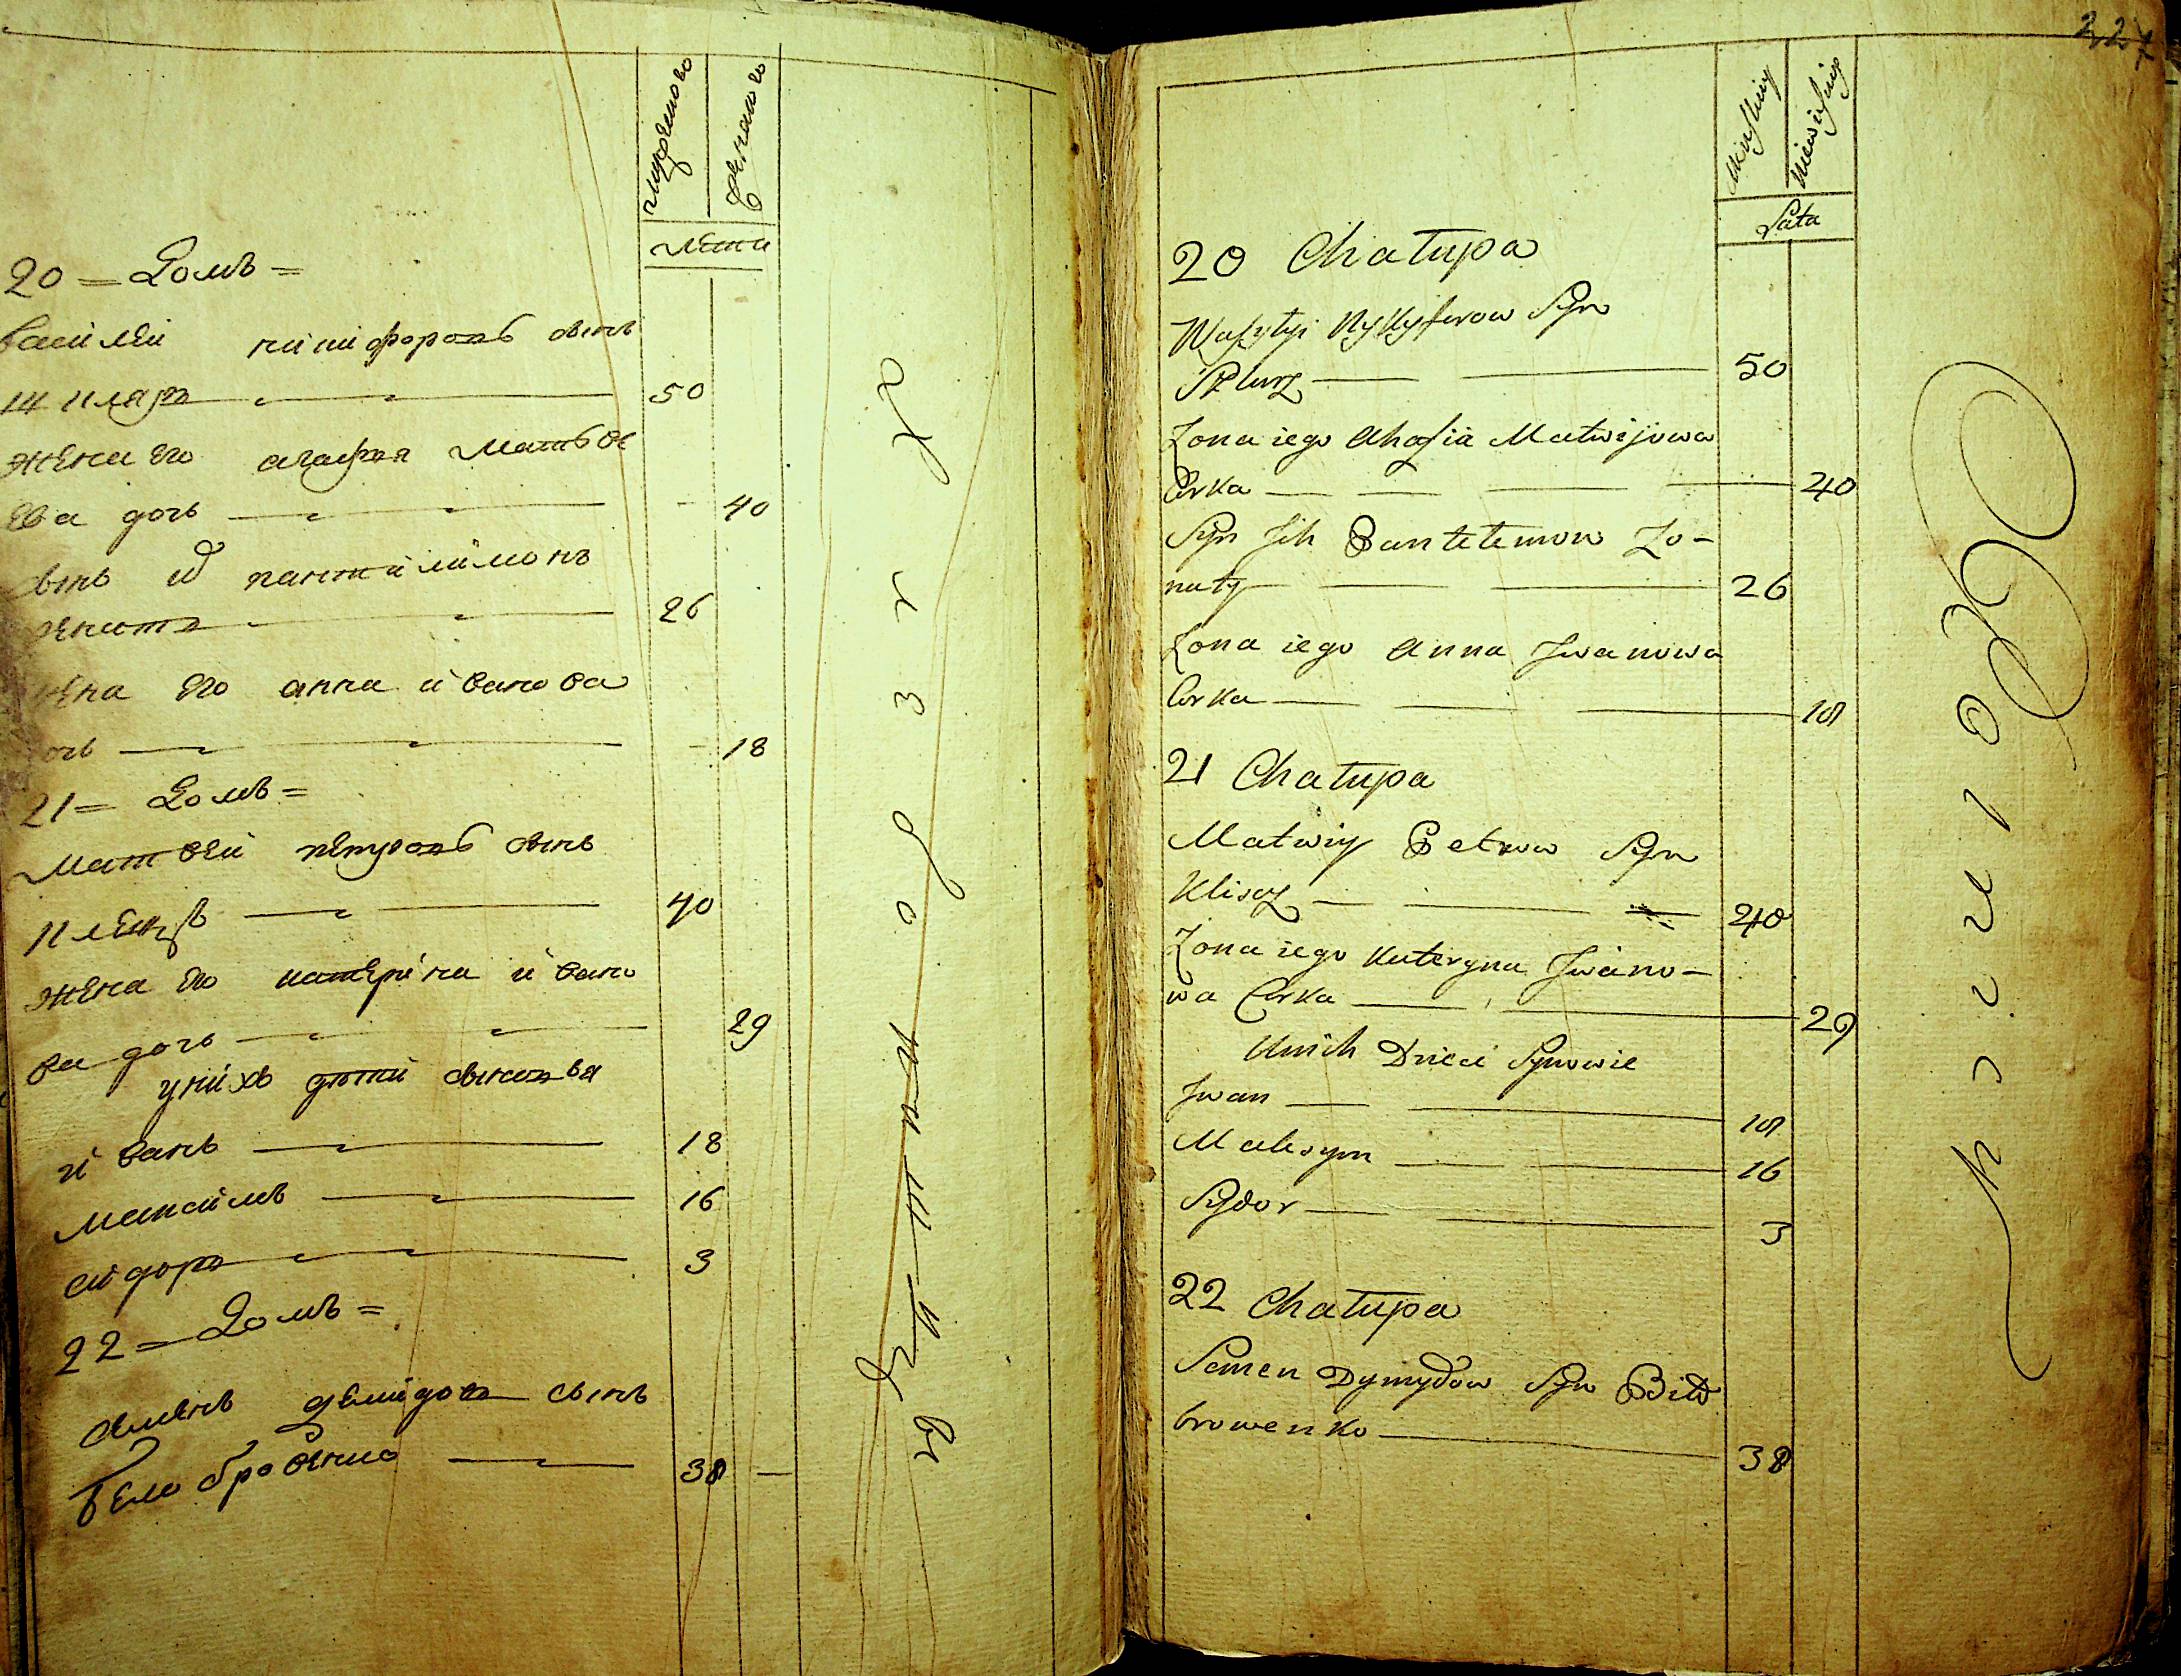 мужеска
женска
лета
20 = домъ =
василей никифоровъ сынъ
шкляръ 50
жена его агафия матвѣе
ева дочь 40
сынъ их пантилимонъ
женатъ 26
жена его анна иванова
дочь 18
21 = домъ =
матвей петровъ сынъ
40
жена его катерина ивано
ва дочь 29
у нихъ дѣти сыновья
иванъ 18
максимъ 16
сидоръ 3
22 = домъ =
семенъ демидовъ сынъ
белобровенко 38
227
Męskiey
Niewieściey
Lata
20 Chałupa
Wasylyi Nykyforow Syn
Szklarz 50
Żona iego Ahafia Matwijowa
Corka 40
Syn Jch Pantelemon Żo-
naty 26
Żona iego Anna Jwanowa
Corka 18
21 Chałupa
Matwiy Petrow Syn
Kliszcz 40
Żona iego Kateryna Jwano-
wa Corka 29
Unich Dzieci Synowie
Jwan 18
Maksym 16
Sydor 3
22 Chałupa
Semen Dymydow Syn Biło
browenko 38